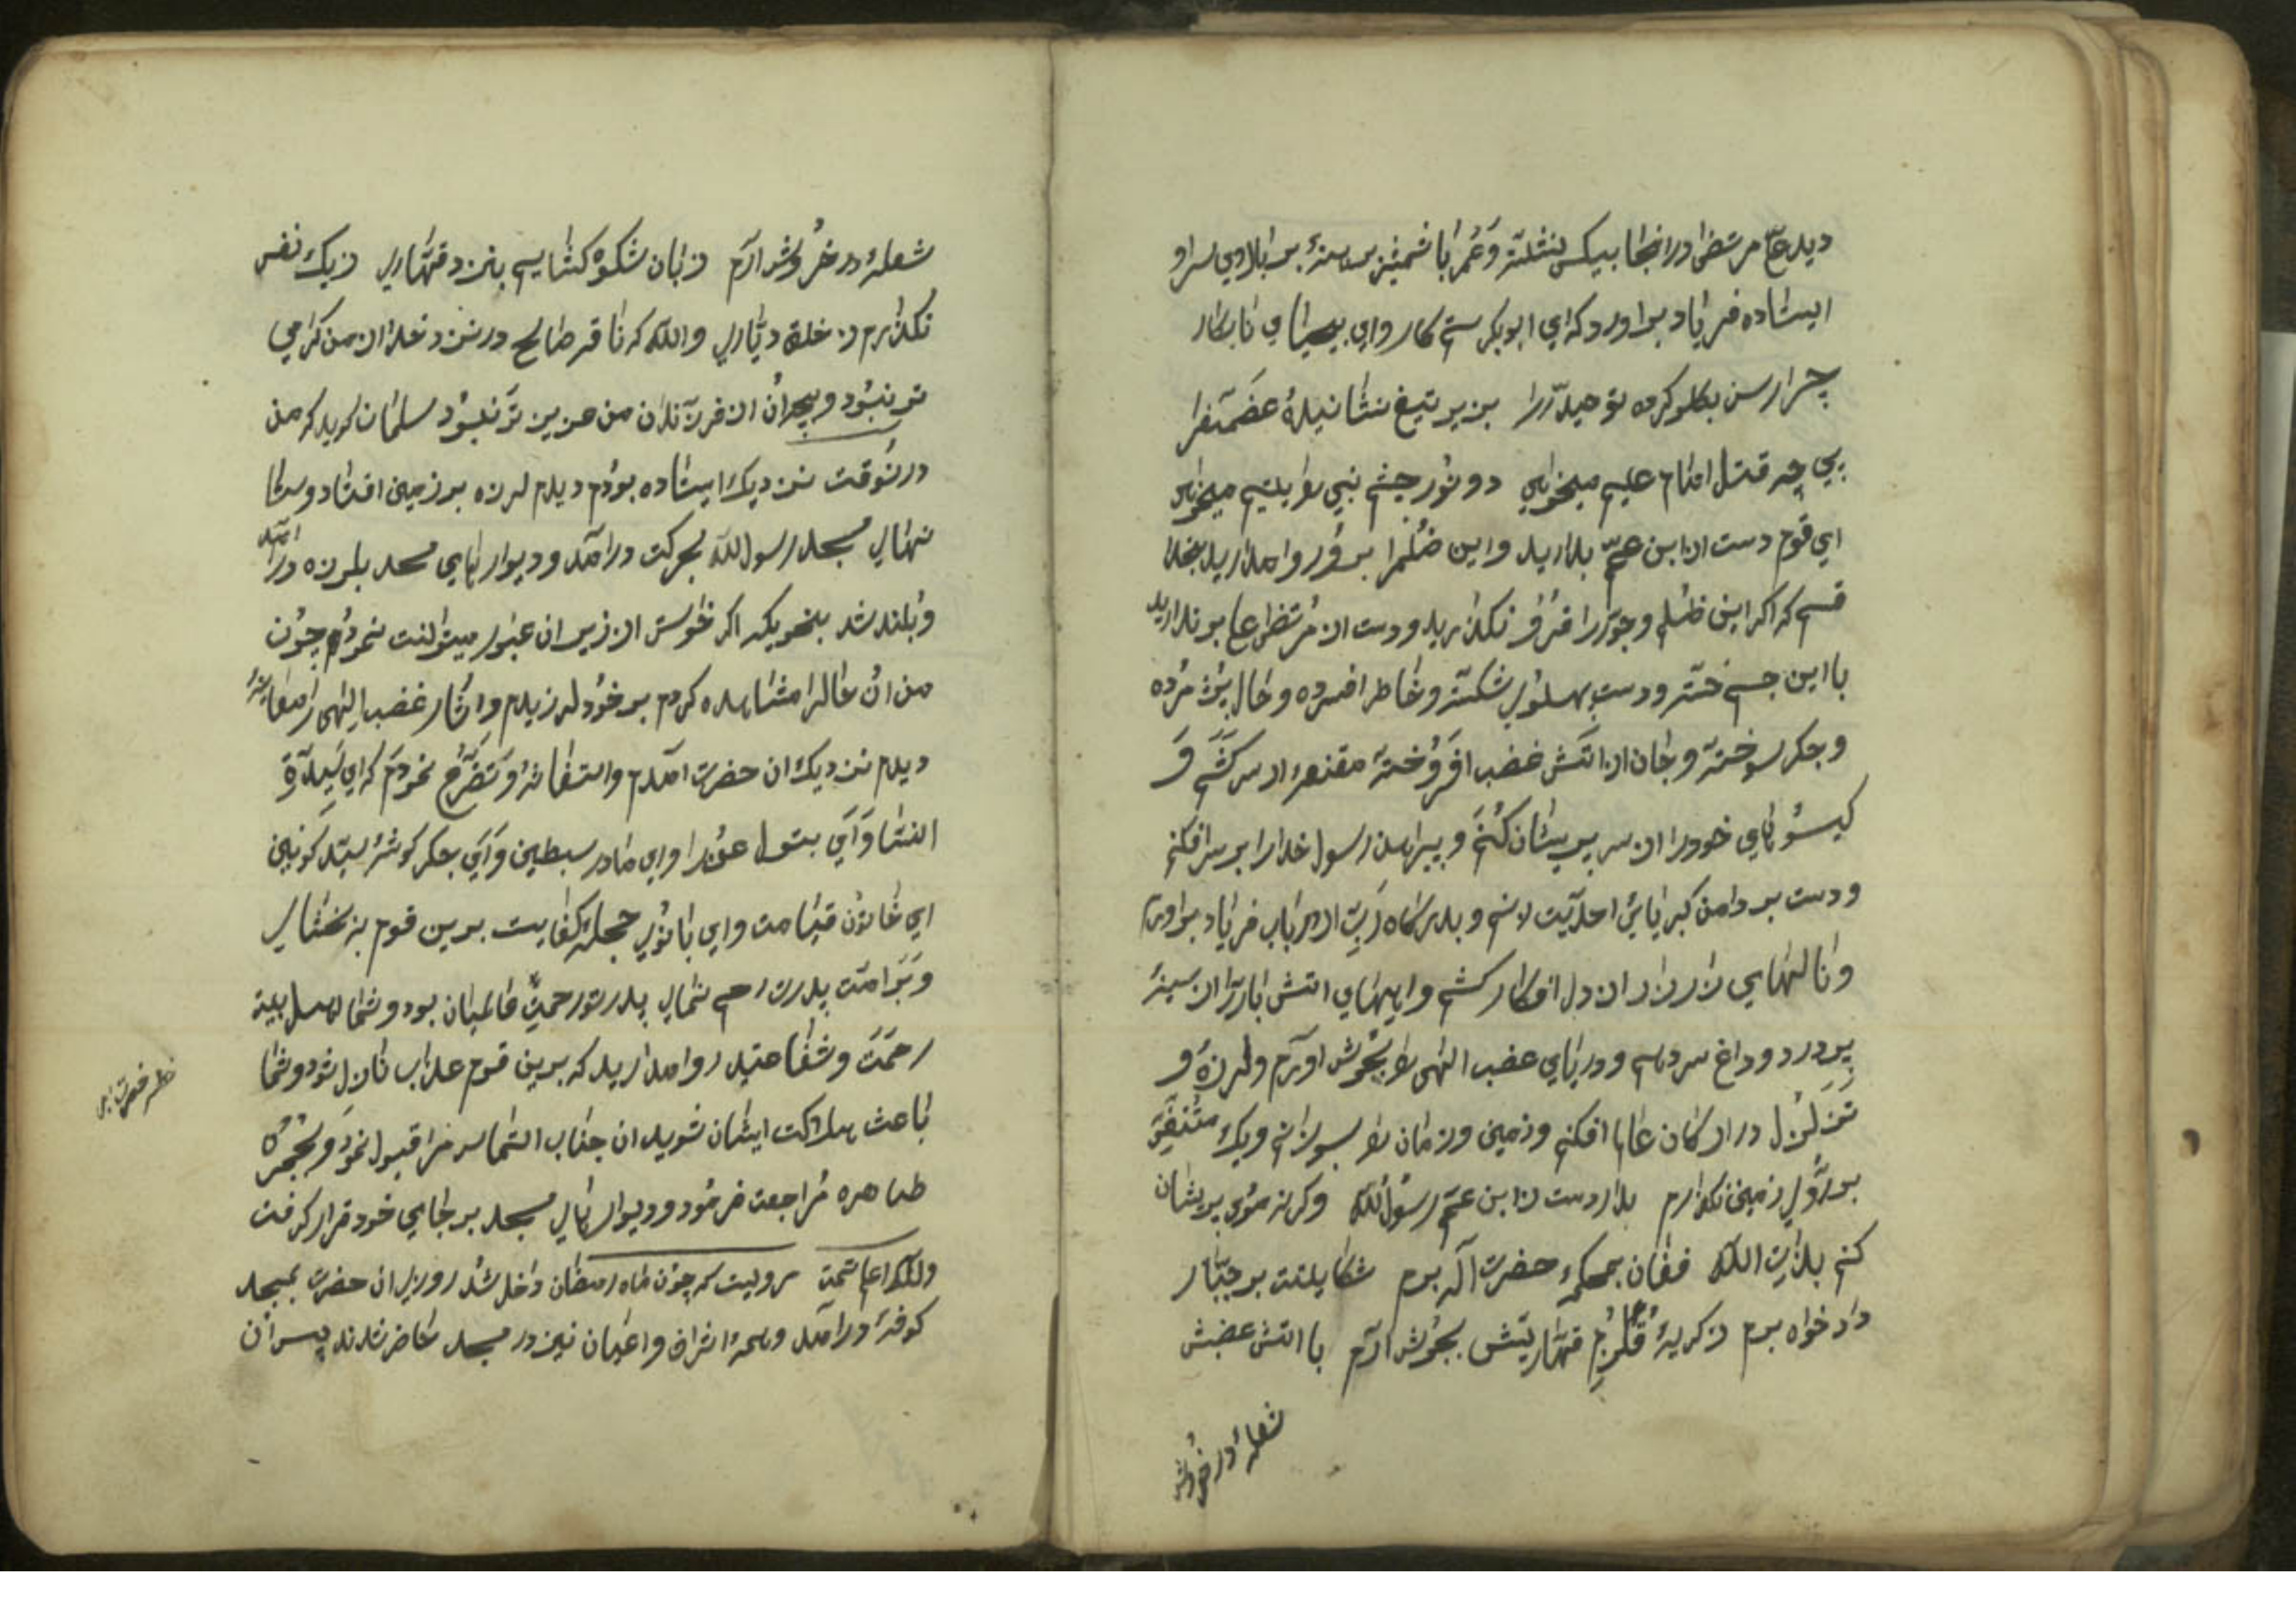 دید علی مرتضی در انجا بیکس نشسته و عمر با شمشیر برهنه بر بالای سر او
ایستاده فریاد بر اورد که ای ابوبکر ستم کار و ای بیحیای نابکار
چرا رسن بکلو کرده توحید را بزیر تیغ نشانیده غضنفر را
بی چه قتل امام علیم میخواهی دو نور چشم نبی را یتیم میخواهی
ای قوم دست از ابن عمم بدارید و این ظلم را بر ور روا مدارید بخدا
قسم که اکر این ظلم و جور را فرو نکذارید و دست از مرتضی علی بر ندارید
با این جسم خسته و دست پهلوی شکسته و خاطر افسرده و حال پژمرده
و جکر سوخته و جان از اتش غضب افروخته مقنعه از سر کشم و
کیسوهای خود را از سر پریشان کنم و پیراهن رسول خدا را بر سر افکنم
و دست بر دامن کبریایئ احدیت زنم و بدرکاه رب الارباب فریاد براورم
و نالهای زار زار از دل افکار کشم و ایههای اتش بار را از سینهٔ
پر درد و داغ سر دهم و دریای غضب الهی را بجوش اورم و لرزه و
تزلزل در ارکان عالم افکنم و زمین و زمان را بسوزانم و یک متنفس
بر روی زمین نکذارم بدار دست ز ابن عم رسول الله و کرنه موی پریشان
کنم بذات الله فغان بمحکمهٔ حضرت اله برم شکایتت بر جبار
داد خواه برم ز کریهٔ قلزم قهاریتش بجوش آرم با اتش غضبش
شعله در خروش
شعله در خروش ارم زبان شکوه کشایم بنزد قهاری ز یک نفس
نکذارم ز خلق دیاری والله که ناقه صالح در نزد خدا از من کرامی
تر نبود و بچهٔ ان از فرزندان من عزیز تر نبود سلمان کوید که من
در نوقت نزدیک ایستاده بودم دیدم لرزه بر زمین افتاد و ستا
نهای مسجد رسول الله بحرکت درامد و دیوارهای مسجد بلرزه درامد
و بلند شد بنحویکه اکر خواستی از زیر ان عبور میتوانست نمود چون
من ان حال را مشاهده کردم بر خود لرزیدم و اثار غضب الهی را معاینه
دیدم نزدیک ان حضرت امدم و استغاثه و تضرع نمودم که ای سیدة
النسا و ای بتول عذرا و ای مادر سبطین و ای جکر کوشهٔ سید کونین
ای خاتون قیامت و ای بانوی حجله کفایت برین قوم ببخشای
و بر امت پدرت رحم نمای پدر تو رحمت عالمیان بود و شما اهل بیت
رحمت و شفاعتید روا مدارید که برین قوم عذاب نازل شود و شما
باعث هلاکت ایشان شوید ان جناب التماس مرا قبول نمود و بحجره
طاهره مراجعت فرمود و دیوارهای مسجد بر جای خود قرار کرفت
والله اعلم تمت مرویست که چون ماه رمضان داخل شد روزی ان حضرت بمسجد
کوفه درامد و همه اشراف و اعیان نیز در مسجد حاضر شدند پس ان